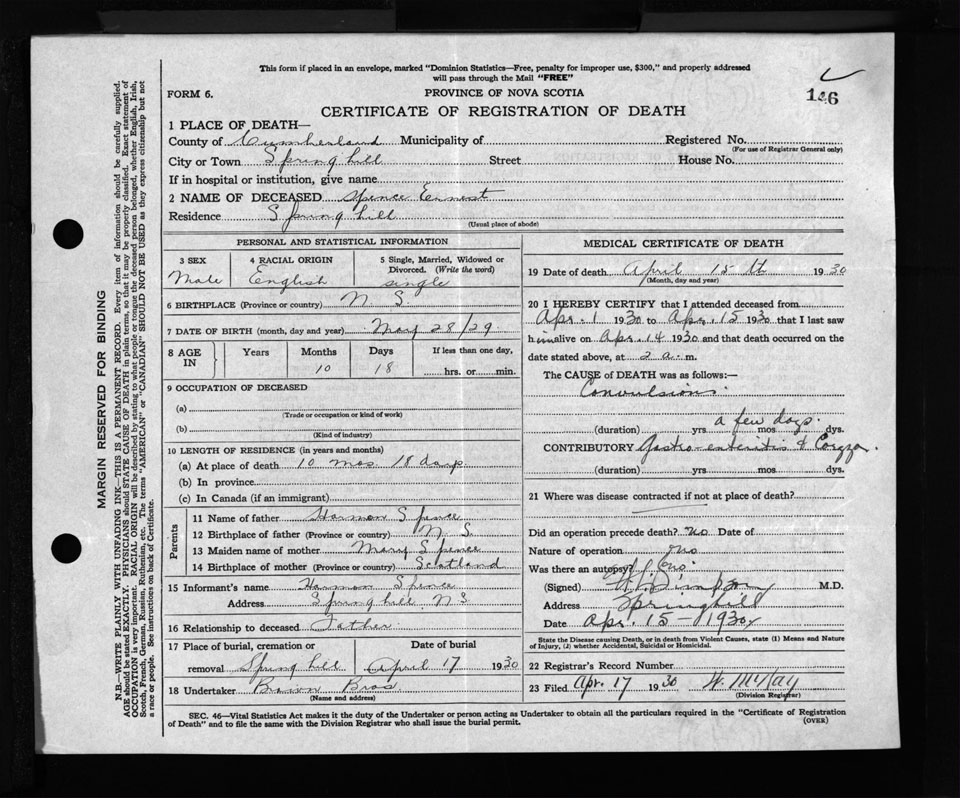 This form if placed in an envelope, marked "Dominion Statistics—Free, penalty for improper use, $300," and properly addressed
will pass through the Mail "FREE"
FORM 6.
PROVINCE OF NOVA SCOTIA
146
CERTIFICATE OF REGISTRATION OF DEATH
1 PLACE OF DEATH—
County of Cumberland Municipality of Registered No.
(For use of Registrar General only)
City or Town Springhill Street House No.
If in hospital or institution, give name
2 NAME OF DECEASED Spence Ernest
Residence Springhill
(Usual place of abode)
PERSONAL AND STATISTICAL INFORMATION
3 SEX 4 RACIAL ORIGIN 5 Single, Married, Widowed or
Divorced. (Write the word)
Male English single
6 BIRTHPLACE (Province or country) N S
7 DATE OF BIRTH (month, day and year) May 28/29
8 AGE IN Years Months Days If less than one day,
10 18 hrs. or min.
9 OCCUPATION OF DECEASED
(a)
(Trade or occupation or kind of work)
(b)
(Kind of industry)
10 LENGTH OF RESIDENCE (in years and months)
(a) At place of death 10 mos 18 days
(b) In province
(c) In Canada (if an immigrant)
Parents
11 Name of father Harmon Spence
12 Birthplace of father (Province or country) N S
13 Maiden name of mother Mary Spence
14 Birthplace of mother (Province or country) Scotland
15 Informant's name Harmon Spence
Address Springhill, N S
16 Relationship to deceased Father
17 Place of burial, cremation or Date of burial
removal Springhill April 17 1930
18 Undertaker Brown Bros
(Name and address)
MEDICAL CERTIFICATE OF DEATH
19 Date of death April 15th 1930
(Month, day and year)
20 I HEREBY CERTIFY that I attended deceased from
Apr. 1 1930 to Apr. 15 1930 that I last saw
him alive on Apr. 14 1930 and that death occurred on the
date stated above, at 2 a. m.
The CAUSE of DEATH was as follows:—
Convulsions
a few days.
(duration) yrs mos dys.
CONTRIBUTORY Gastro-enteritis & Coryza
(duration) yrs mos dys.
21 Where was disease contracted if not at place of death?
Did an operation precede death? no Date of
Nature of operation no
Was there an autopsy? no
(Signed) M.D.
Address Springhill
Date Apr. 15-1930
State the Disease causing Death, or in death from Violent Causes, state (1) Means and Nature
of Injury, (2) whether Accidental, Suicidal or Homicidal.
22 Registrar's Record Number
23 Filed Apr. 17 1930 W. McKay
(Division Registrar)
SEC. 46—Vital Statistics Act makes it the duty of the Undertaker or person acting as Undertaker to obtain all the particulars required in the "Certificate of Registration
of Death" and to file the same with the Division Registrar who shall issue the burial permit. (OVER)
MARGIN RESERVED FOR BINDING
N.B.—WRITE PLAINLY WITH UNFADING INK—THIS IS A PERMANENT RECORD. Every item of information should be carefully supplied.
AGE should be stated EXACTLY. PHYSICIANS should STATE CAUSE OF DEATH in plain terms, so that it may be properly classified. Exact statement of
OCCUPATION is very important. RACIAL ORIGIN will be described by stating to what people or tongue the deceased person belonged, whether English, Irish,
Scotch, French, German, Russian, Ruthenian, etc. The terms "AMERICAN" or "CANADIAN" SHOULD NOT BE USED as they express citizenship but not
a race or people. See instructions on back of Certificate.